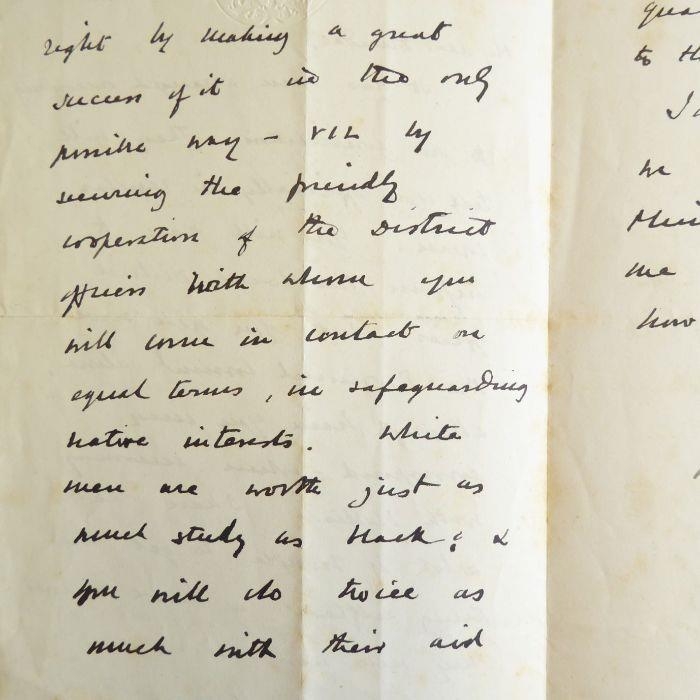 right by making a great
success of it in the only
possible way - viz by
securing the friendly
cooperation of the District
officers with whom you
will come in contact on
equal terms, in safeguarding
native interests. White
men are worth just as
much study as black; &
you will do twice as
much with their aid
to th
we
me
how